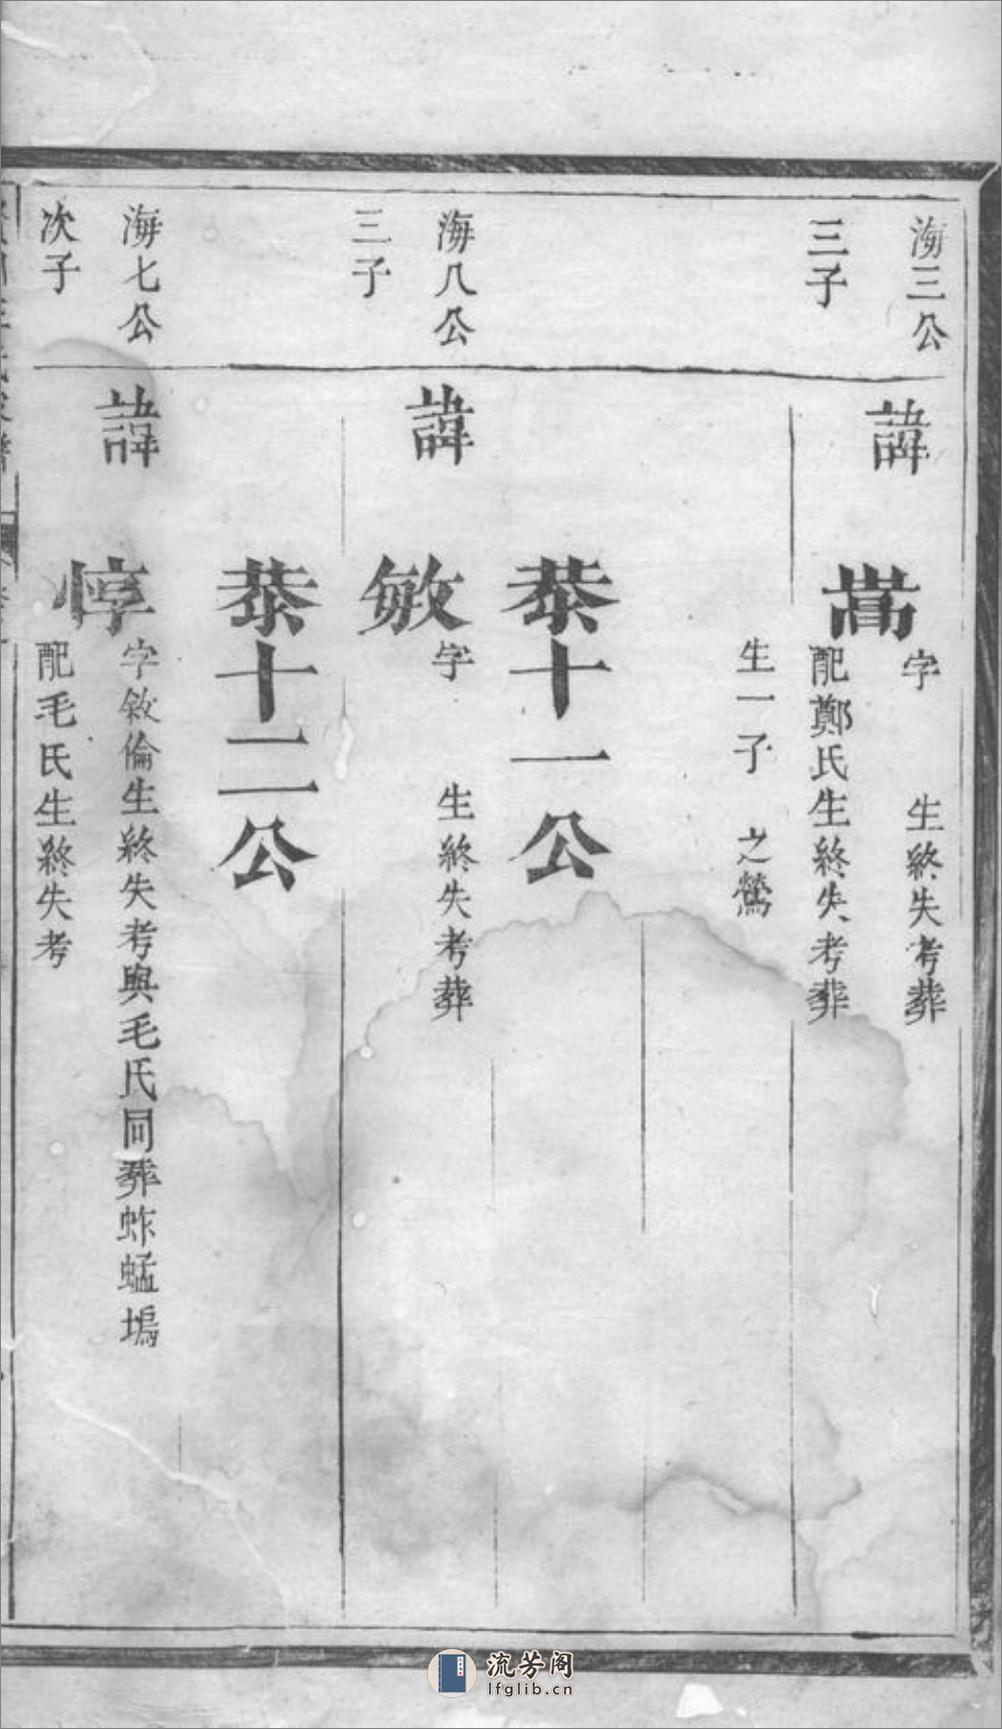 海三公
三子
諱
嵩
字 生終失考葬
配鄭氏生終失考葬
生一子 之鶯
恭十一公
海八公
三子
諱
敏
字 生終失考葬
恭十二公
海七公
次子
諱
惇
字敘倫生終失考與毛氏同葬蚱蜢塢
配毛氏生終失考
流芳阁
lfglib.cn